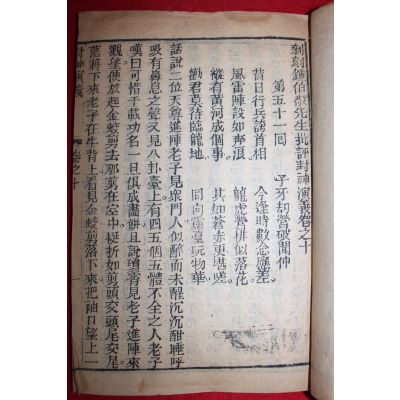 新刻鍾伯敬先生批評封神演義卷之十
第五十一回 子牙劫營破聞仲
昔日行兵誇首相 今逢時數念應差
風雷陣設如奔浪 龍虎營排似落花
縱有黃河成個事 其如蒼赤更堪嗟
勸君莫待臨龍地 同向靈臺玩物華
話說二位天尊進陣老子見衆門人似醉而未醒沉沉酣睡呼
吸有鼻息之聲又見八卦臺上有四五個五體不全之人老子
嘆曰可功名一旦俱成畫餅且說瓊霄見老子進陣來
觀望便放起金蛟剪去那剪在空中挺折如剪頭交頭尾交尾
落將下來老子在牛背上看見金蛟剪落下來把袖口望上一
封神演義 卷之十